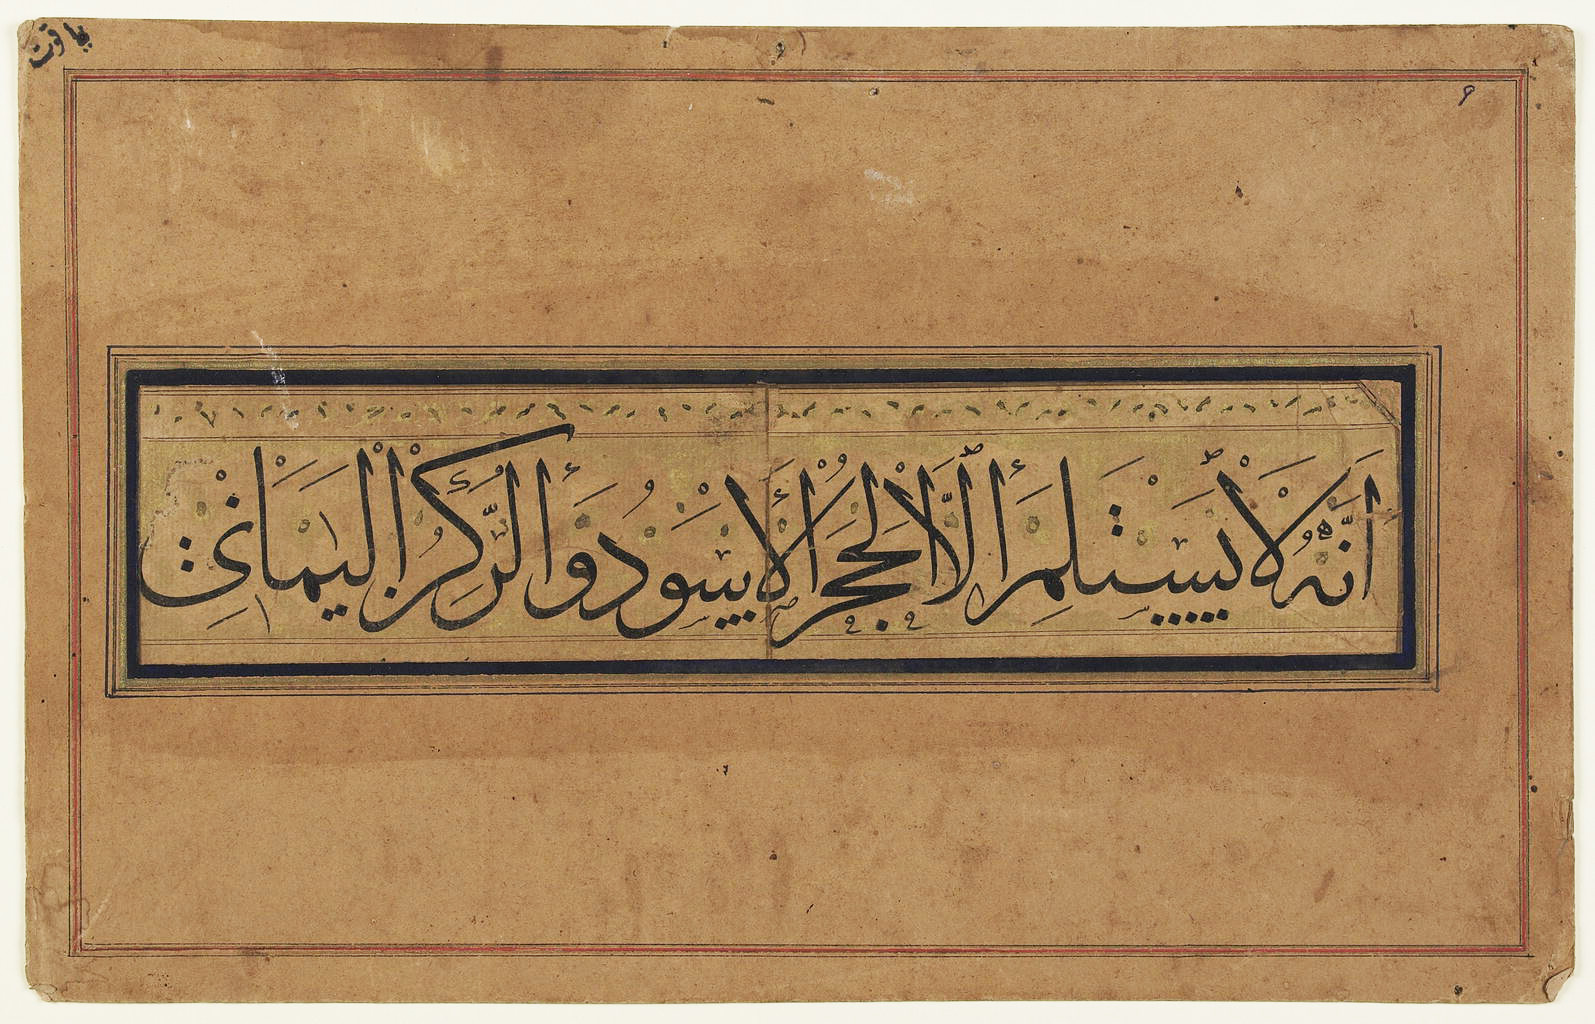 ياقوت
٩
إنّه لا يستلم إلّا الحجر الأسود والركن اليماني